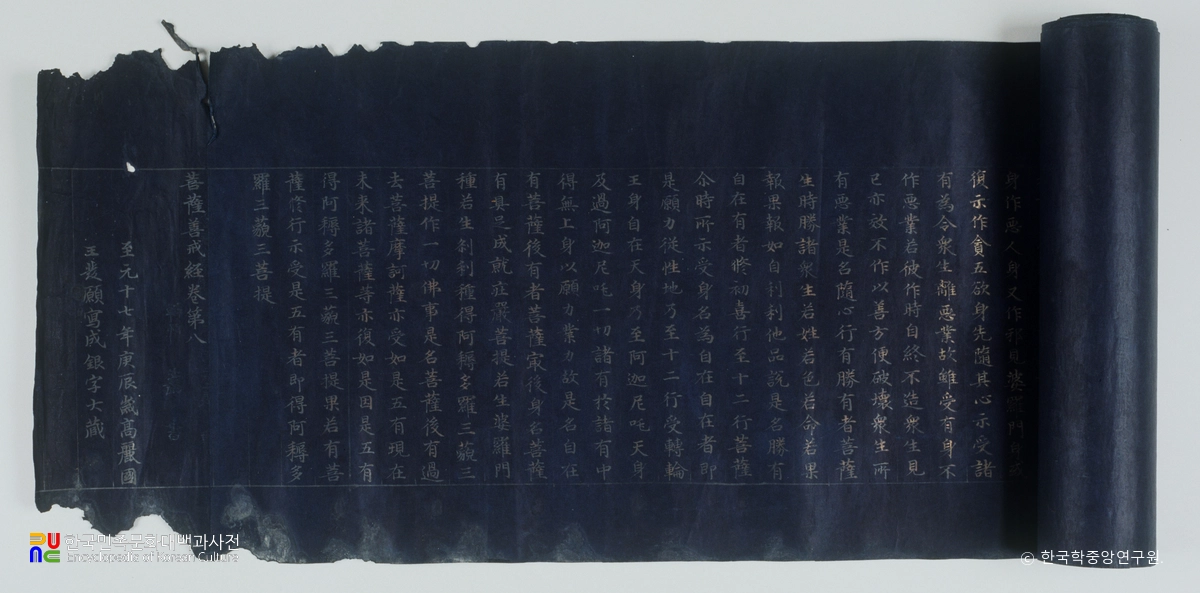 身作惡人身又作邪見婆羅門
復示作貪五欲身先隨其心示受諸
有為令衆生離惡業故雖受有身不
作惡業若彼作時自終不造衆生見
已亦效不作以善方便破壞衆生所
有惡業是名隨心行有勝有者菩薩
生時勝諸衆生若姓若色若命若果
報果報如自利利他品說是名勝有
自在有者修初喜行至十二行菩薩
尒時所示受身名為自在自在者即
是願力従性地乃至十二行受轉輪
王身自在天身乃至阿迦尼吒天身
及過阿迦尼吒一切諸有於諸有中
得無上身以願力業力故是名自在
有菩薩後有者菩薩㝡後身名菩薩
有具足成就莊嚴菩提若生婆羅門
種若生刹利種得阿耨多羅三藐三
菩提作一切佛事是名菩薩後有過
去菩薩摩訶薩亦受如是五有現在
未来諸菩薩等亦復如是因是五有
得阿耨多羅三藐三菩提果若有菩
薩修行示受是五有者即得阿耨多
羅三藐三菩提
菩薩善戒経卷第八
至元十七年庚辰歲高麗國
王發願寫成銀字大藏
한국민족문화대백과사전
Encyclopedia of Korean Culture
© 한국학중앙연구원